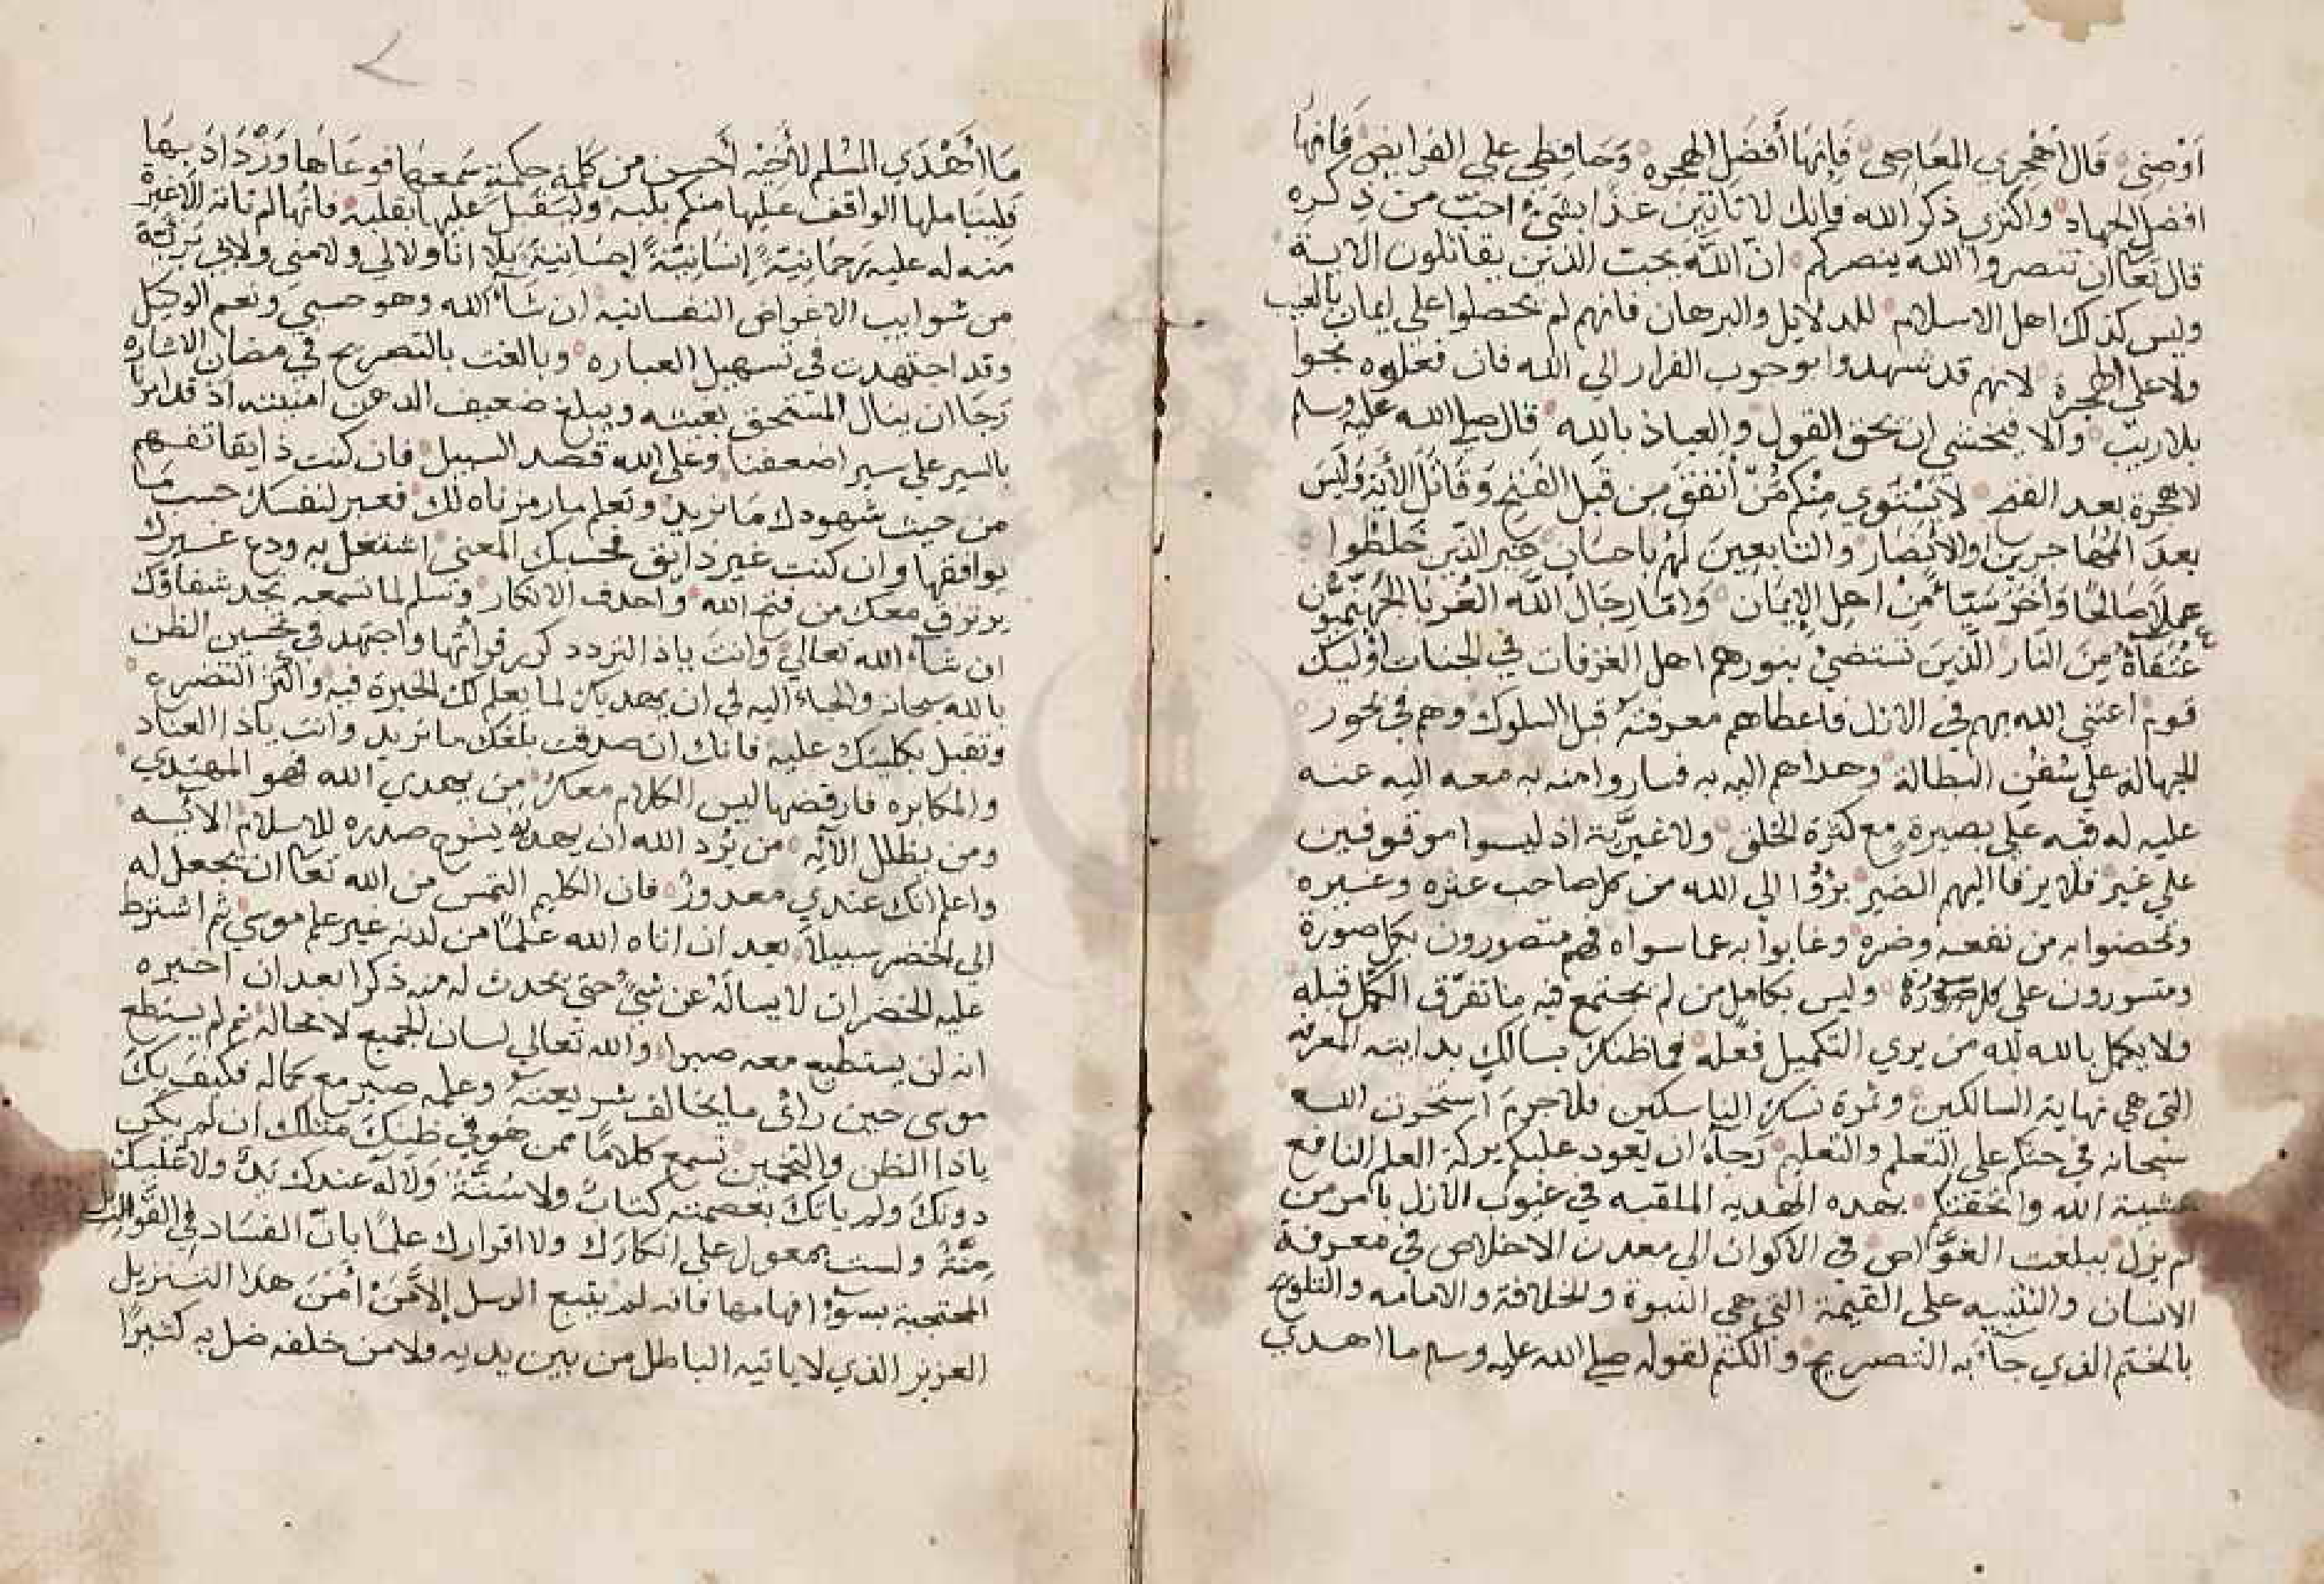 اوصني قال اهجري المعاصي فانها أفضل الهجره وحافظي على الفرايض فانها
افضل الجهاد واكثري ذكر الله فانك لا تاتين غدا بشيء احب من ذكره
قال تعا ان تنصروا الله ينصركم ان الله يحب الذين يقاتلون الاية
وليس كذلك اهل الاسلام للدلايل والبرهان فانهم لم يحصلوا على ايمان بالغيب
ولا على الهجرة لانهم قد شهدوا بوجوب الفرار الي الله فان فعلوه نجوا
بلا ريب والا فيخشي ان يحق القول والعياذ بالله قال صلى الله عليه وسلم
لا هجرة بعد الفتح لا يستوي منكم من أنفق من قبل الفتح وقاتل الاية وليس
بعد المهاجرين والانصار والتابعين لهم باحسان غير الذين خلطوا
عملا صالحا وآخر سيئا من اهل الايمان واما رجال الله الغر بالجهنميون
عتقآء من النار الذين تستضئ بنورهم اهل الغرفات في الجنات أوليك
قوم اعتني الله بهم في الازل فاعطاهم معرفته قبل السلوك وهم في بحور
الجهالة علي سفن البطالة وهداهم اليه به فساروا منه به معه اليه عنه
عليه له فيه على بصيرة مع كثرة الخلق ولا غيرية اذ ليسوا موقوفين
علي غير فلا يرقا اليهم الضير برؤا الى الله من كل صاحب عثره وغيره
وتحصنوا به من نفعه وضره وغابوا به عما سواه فهم متصورون بكل صورة
ومتسورون على كل صورة وليس بكامل من لم يجتمع فيه ما تفرق الكمل قبله
ولا يكمل بالله لله من يري التكميل فعله فما ظنك بسالك بدايته المعرفة
التي هي نهاية السالكين وثمرة نسك الناسكين فلا جرم استخرت الله
سبحانه في حثكم على التعلم والتعليم رجآء ان يعود عليكم بركة العلم النافع
بمشيئة الله واتحفتكم بهذه الهديه الملقيه في غيوب الازل بامر من
لم يزل ببلغت الغواص في الاكوان الي معدن الاخلاص في معرفة
الانسان والتنبيه على القيمة التي هي النبوة والخلافة والامامه والتلويح
بالختم الذي جآء به التصريح والكتم لقوله صلى الله عليه وسلم ما اهدي
ما أهدي المسلم لأخيه أحسن من كلمة حكمة سمعها فوعاها وزداد بها
فليتاملها الواقف عليها منكم بلبه وليقبل عليها بقلبه فانها لم تاته الا غير
منه له عليه رحمانية إنسانية إحسانية بلا انا ولا لي ولا مني ولا بي بريئة
من شوايب الاغراض النفسانيه ان شآء الله وهو حسبي ونعم الوكيل
وقد اجتهدت في تسهيل العباره وبالغت بالتصريح في مضان الاشاره
رجا ان ينال المستحق بغيته ويبلغ ضعيف الذهن امنيته اذ قد امرنا
بالسير علي سير اضعفنا وعلى الله قصد السبيل فان كنت ذايقا تفهم
من حيث شهودك ما نريد وتعلم ما رمزناه لك فعبر لنفسك حسب ما
يوافقها وان كنت غير ذايق فحسبك المعني اشتغل به ودع غيرك
يرتزق معك من فتح الله واحذف الانكار وتسلم لما تسمعه تجد شفاؤك
ان شآء الله تعالى وانت ياذا التردد كرر قرأتها واجتهد في تحسين الظن
بالله سبحانه والجاء اليه في ان يهديك لما يعلم لك الخيرة فيه واكثر التضرع
وتقبل بكليتك عليه فانك ان صدقت بلغك ما تريد وانت ياذا العناد
والمكابره فارفضها ليس الكلام معك من يهدي الله فهو المهتدي
ومن يظلل الآيه من يرد الله ان يهديه يشرح صدره للاسلام الايه
واعلم انك عندي معذور فان الكليم التمس من الله تعا ان يجعل له
الي الخضر سبيلا بعد ان اتاه الله علما من لدنه غير علم موسي ثم اشترط
عليه الخضر ان لا يساله عن شيء حتي يحدث له منه ذكرا بعد ان اخبره
انه لن يستطيع معه صبرا والله تعالي لسان الجميع لا محالة ثم لم يستطع
موسى حين رائ ما يخالف شريعته وعلمه صبر مع كماله فكيف بك
ياذا الظن والتخمين تسمع كلاما ممن هو في ظنك مثلك ان لم يكن
دونك ولم ياتك بعصمته كتاب ولا سنة ولا له عندك يد ولا عليك
منة ولست بمعول على انكارك ولا اقرارك علما بان الفساد في القوالب
المحتجبة بسوء افهامها فانه لم يتبع الرسل إلا من أمن هذا التنزيل
العزيز الذي لا ياتيه الباطل من بين يديه ولا من خلفه ضل به كثيرا